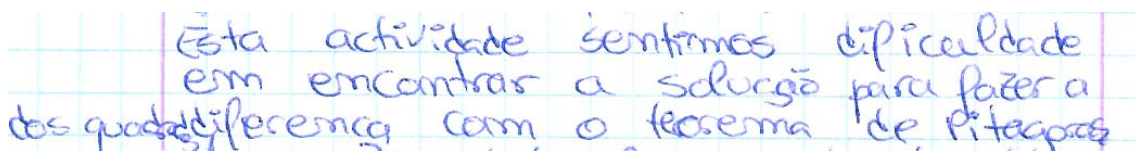 Esta actividade sentimos dificuldade
em encontrar a solução para fazer a
dos quadrados diferença com o teorema de Pitagoras